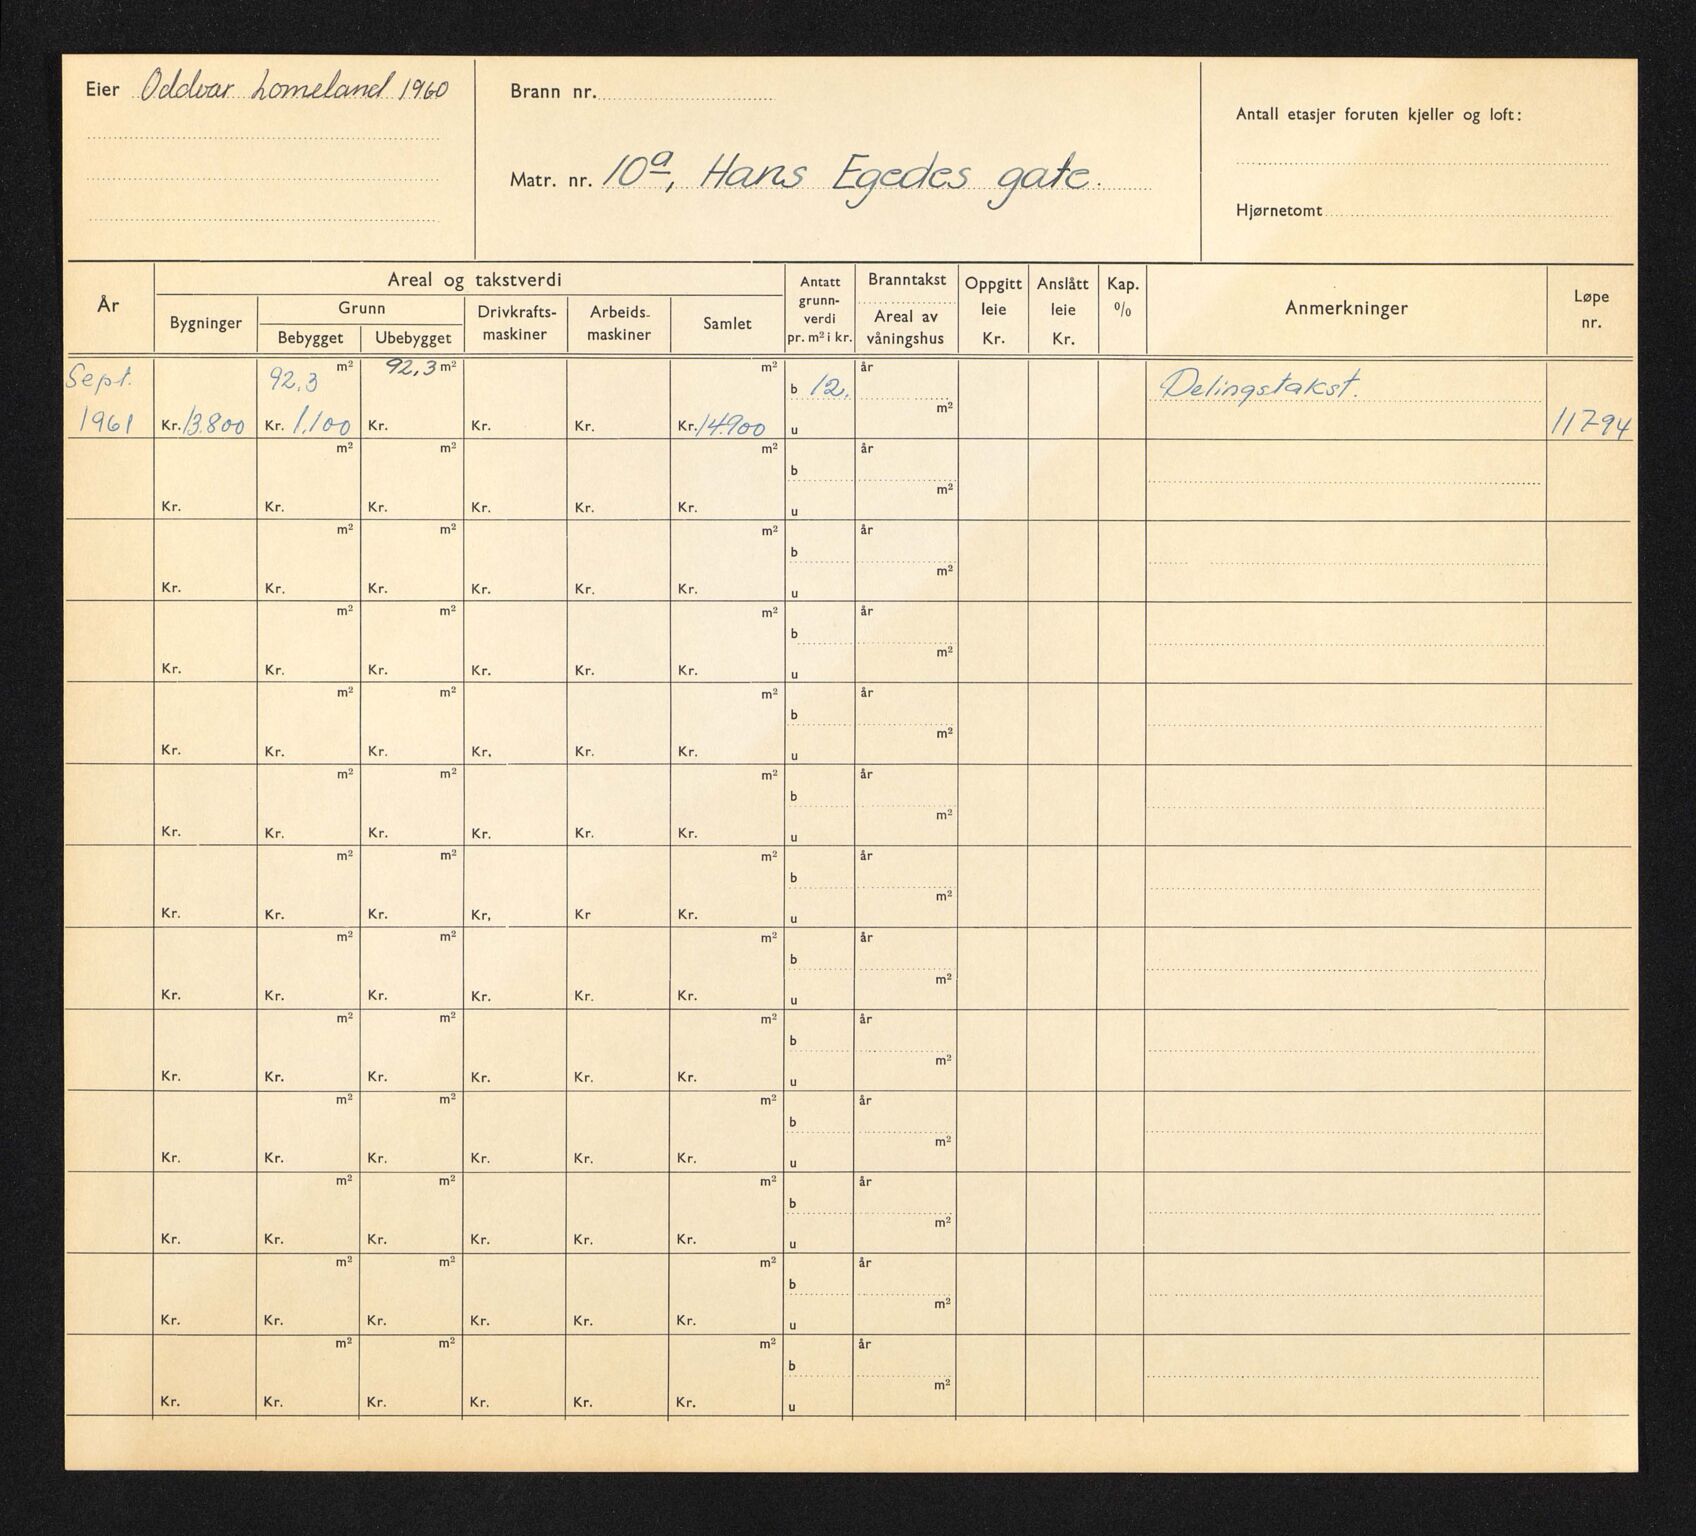 Eier Oddvar Lomeland 1960
Brann nr.
Matr. nr. 10a, Hans Egedes gate.
Antall etasjer foruten kjeller og loft:
Hjørnetomt
År
Areal og takstverdi
Bygninger
Grunn
Bebygget Ubebygget
Drivkrafts-
maskiner
Arbeids-
maskiner
Samlet
Antatt
grunn-
verdi
pr. m² i kr.
Branntakst
Areal av
våningshus
Oppgitt
leie
Kr.
Anslått
leie
Kr.
Kap.
%
Anmerkninger
Løpe
nr.
Sept. 92,3 m² 92,3 m² m² b 12. år Delingstakst.
1961 Kr. 13.800 Kr. 1.100 Kr. Kr. Kr. Kr. 14.900 u m² 11794
m² m² m² b år
Kr. Kr. Kr. Kr. Kr. Kr. u m²
m² m² m² b år
Kr. Kr. Kr. Kr. Kr. Kr. u m²
m² m² m² b år
Kr. Kr. Kr. Kr. Kr. Kr. u m²
m² m² m² b år
Kr. Kr. Kr. Kr. Kr. Kr. u m²
m² m² m² b år
Kr. Kr. Kr. Kr. Kr. Kr. u m²
m² m² m² b år
Kr. Kr. Kr. Kr. Kr Kr. u m²
m² m² m² b år
Kr. Kr. Kr. Kr. Kr. Kr. u m²
m² m² m² b år
Kr. Kr. Kr. Kr. Kr. Kr. u m²
m² m² m² b år
Kr. Kr. Kr. Kr. Kr. Kr. u m²
m² m² m² b år
Kr. Kr. Kr. Kr. Kr. Kr. u m²
m² m² m² b år
Kr. Kr. Kr. Kr. Kr. Kr. u m²
m² m² m² b år
Kr. Kr. Kr. Kr. Kr. Kr. u m²